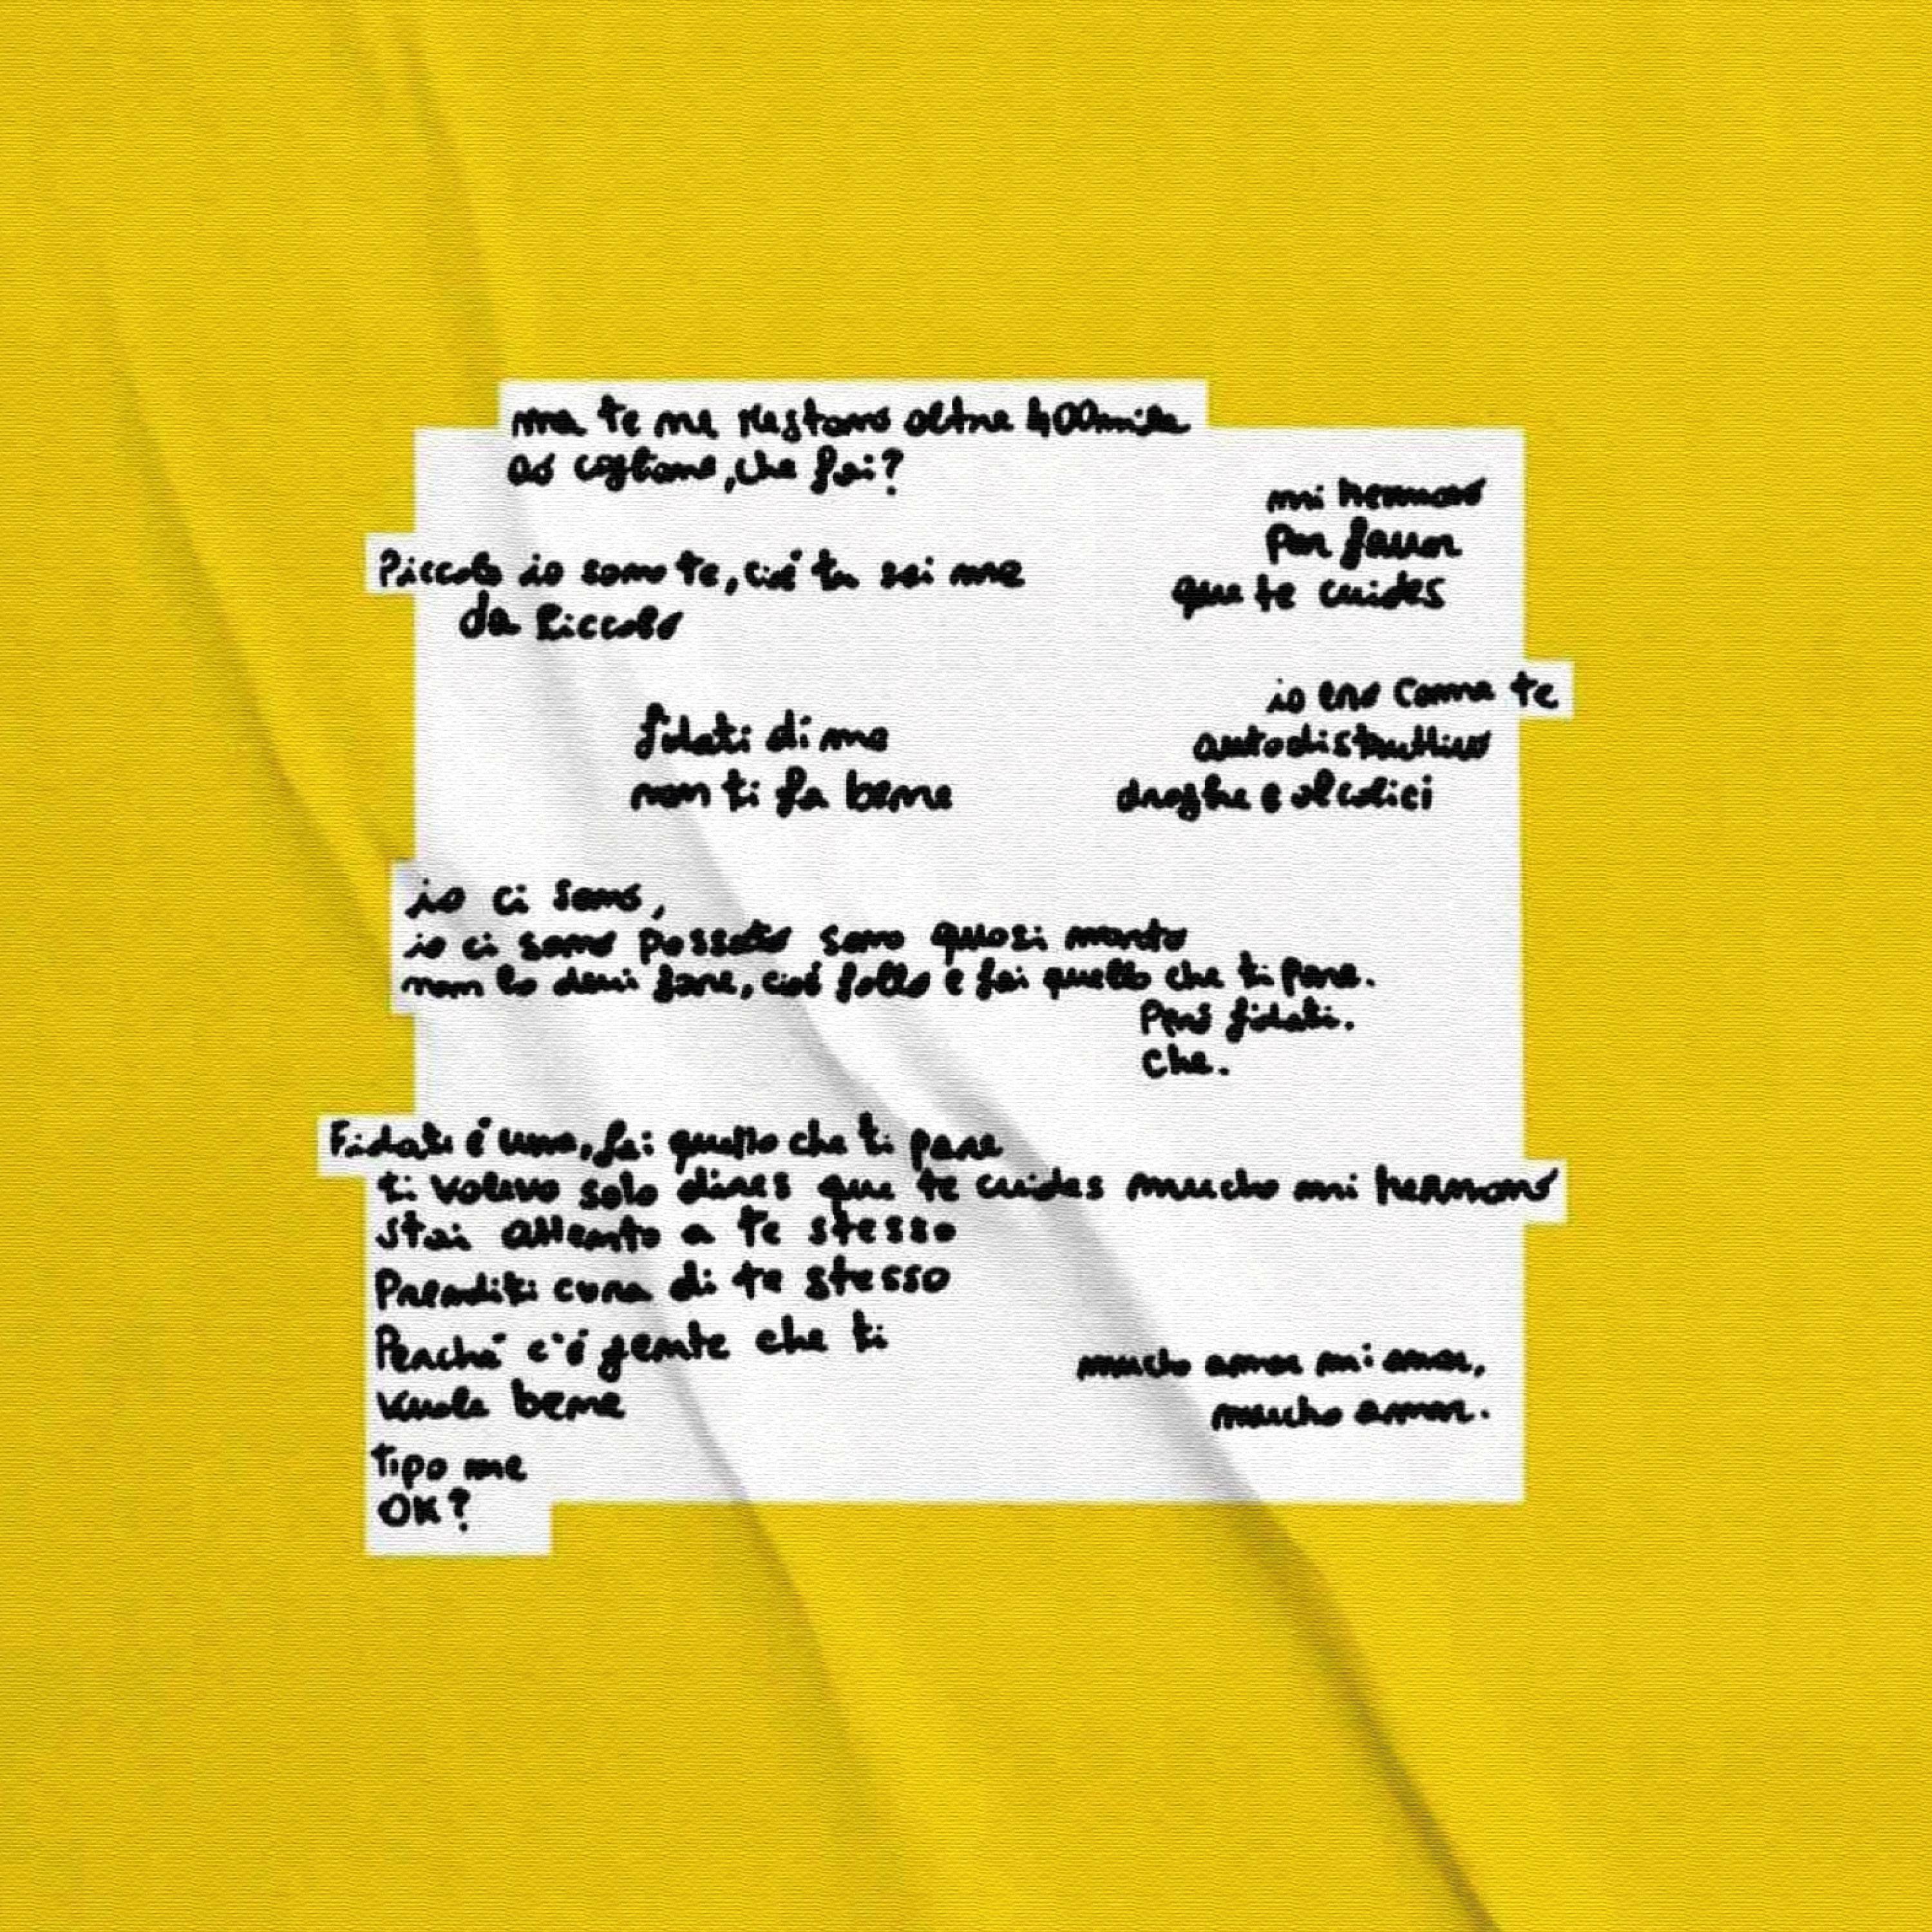 ma te ne restano oltre 400mila
oò coglione, che fai?
mi hermano
por favor
que te cuides
Piccolo io sono te, cioé tu sei me
da piccolo
io ero come te
autodistruttivo
droghe e alcolici
fidati di me
non ti fa bene
io ci sono,
io ci sono passato sono quasi morto
non lo devi fare, cioé fallo e fai quello che ti pare.
Peró fidati.
Che.
Fidati é una, fai quello che ti pare
ti volevo solo dire que te cuides mucho mi hermano
stai attento a te stesso
Prenditi cura di te stesso
Perché c'é gente che ti
vuole bene
mucho amor mi amor,
mucho amor.
tipo me
OK?